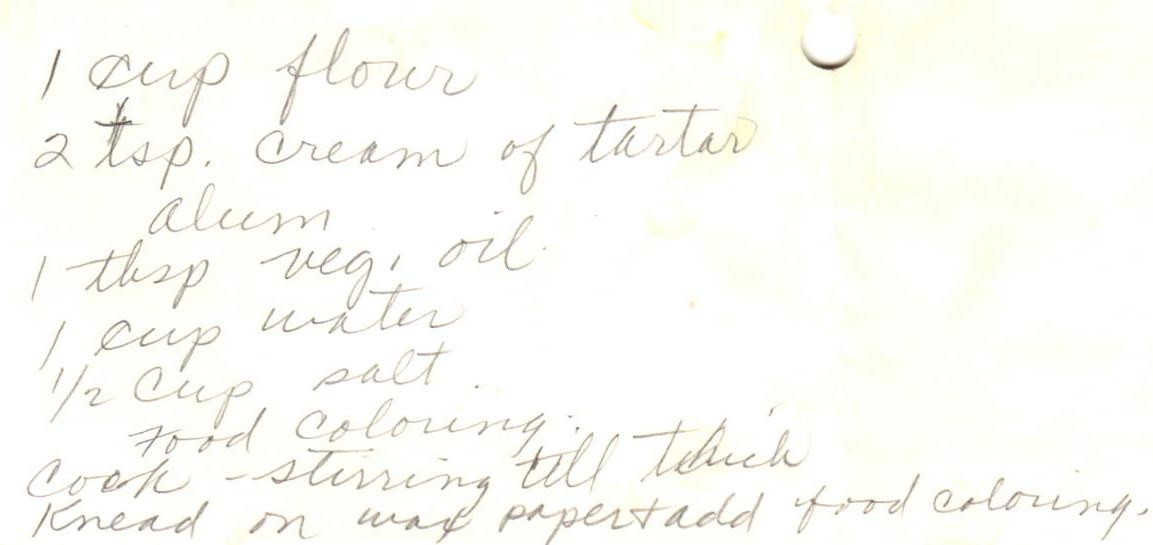 1 cup flour
2 tsp. cream of tartar
alum
1 tbsp veg. oil
1 cup water
1/2 cup salt.
Food coloring.
Cook - stirring till thick
Knead on wax paper + add food coloring.